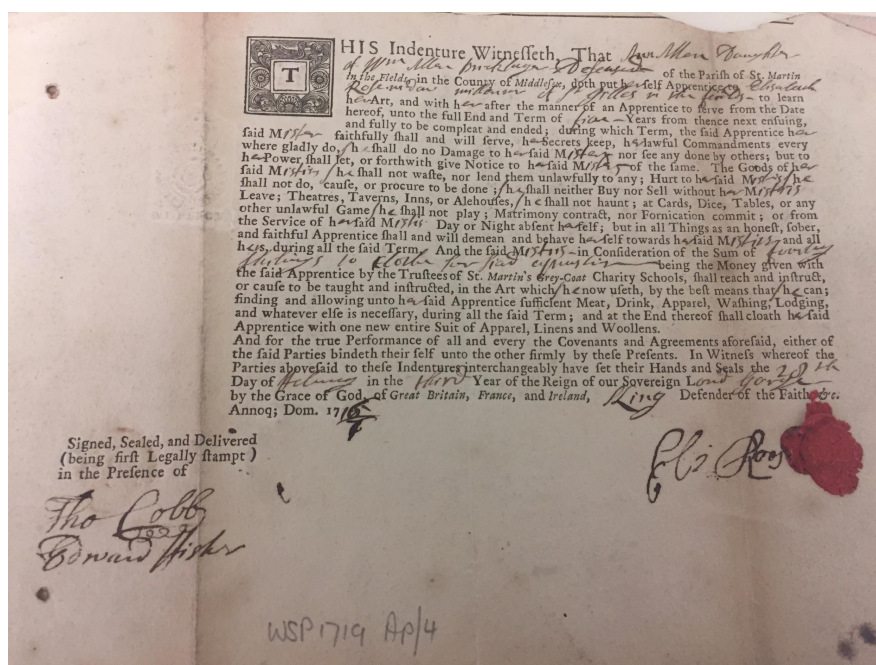 THIS Indenture Witnesseth, That Ann Allen Daughter
of Wm Allen Bricklayer Deceased of the Parish of St. Martin
in the Fields, in the County of Middlesex, doth put herself Apprentice to Elizabeth
of St Gilles in the fields to learn
her Art, and with her after the manner of an Apprentice to ſerve from the Date
hereof, unto the full End and Term of Years from thence next enſuing,
and fully to be compleat and ended; during which Term, the ſaid Apprentice her
ſaid Miſtres faithfully ſhall and will ſerve, her Secrets keep, her lawful Commandments every
where gladly do, ſhe ſhall do no Damage to her ſaid Miſtres nor ſee any done by others; but to
her Power, ſhall let, or forthwith give Notice to her ſaid Miſtres of the ſame. The Goods of her
ſaid Miſtris ſhe ſhall not waſte, nor lend them unlawfully to any; Hurt to her ſaid Miſtris ſhe
ſhall not do, cauſe, or procure to be done; ſhe ſhall neither Buy nor Sell without her Miſtris
Leave; Theatres, Taverns, Inns, or Alehouſes, ſhe ſhall not haunt; at Cards, Dice, Tables, or any
other unlawful Game ſhe ſhall not play; Matrimony contract, nor Fornication commit; or from
the Service of her ſaid Miſtris Day or Night abſent herſelf; but in all Things as an honeſt, ſober,
and faithful Apprentice ſhall and will demean and behave herſelf towards her ſaid Miſtris and all
hers, during all the ſaid Term. And the ſaid Miſtris in Conſideration of the Sum of
to Cloth her ſaid being the Money given with
the ſaid Apprentice by the Truſtees of St. Martin's Grey-Coat Charity Schools, ſhall teach and inſtruct,
or cauſe to be taught and inſtructed, in the Art which ſhe now uſeth, by the beſt means that ſhe can;
finding and allowing unto her ſaid Apprentice ſufficient Meat, Drink, Apparel, Waſhing, Lodging,
and whatever elſe is neceſſary, during all the ſaid Term; and at the End thereof ſhall cloath her ſaid
Apprentice with one new entire Suit of Apparel, Linens and Woollens.
And for the true Performance of all and every the Covenants and Agreements aforeſaid, either of
the ſaid Parties bindeth their ſelf unto the other firmly by theſe Preſents. In Witneſs whereof the
Parties aboveſaid to theſe Indentures interchangeably have ſet their Hands and Seals the 28th
Day of in the third Year of the Reign of our Sovereign Lord George
by the Grace of God, of Great Britain, France, and Ireland, King Defender of the Faith, &c.
Annoq; Dom. 171
Signed, Sealed, and Delivered
(being firſt Legally ſtampt)
in the Preſence of
Eli
Tho Cobb
Edward Fisher
WSP1719 AP/4